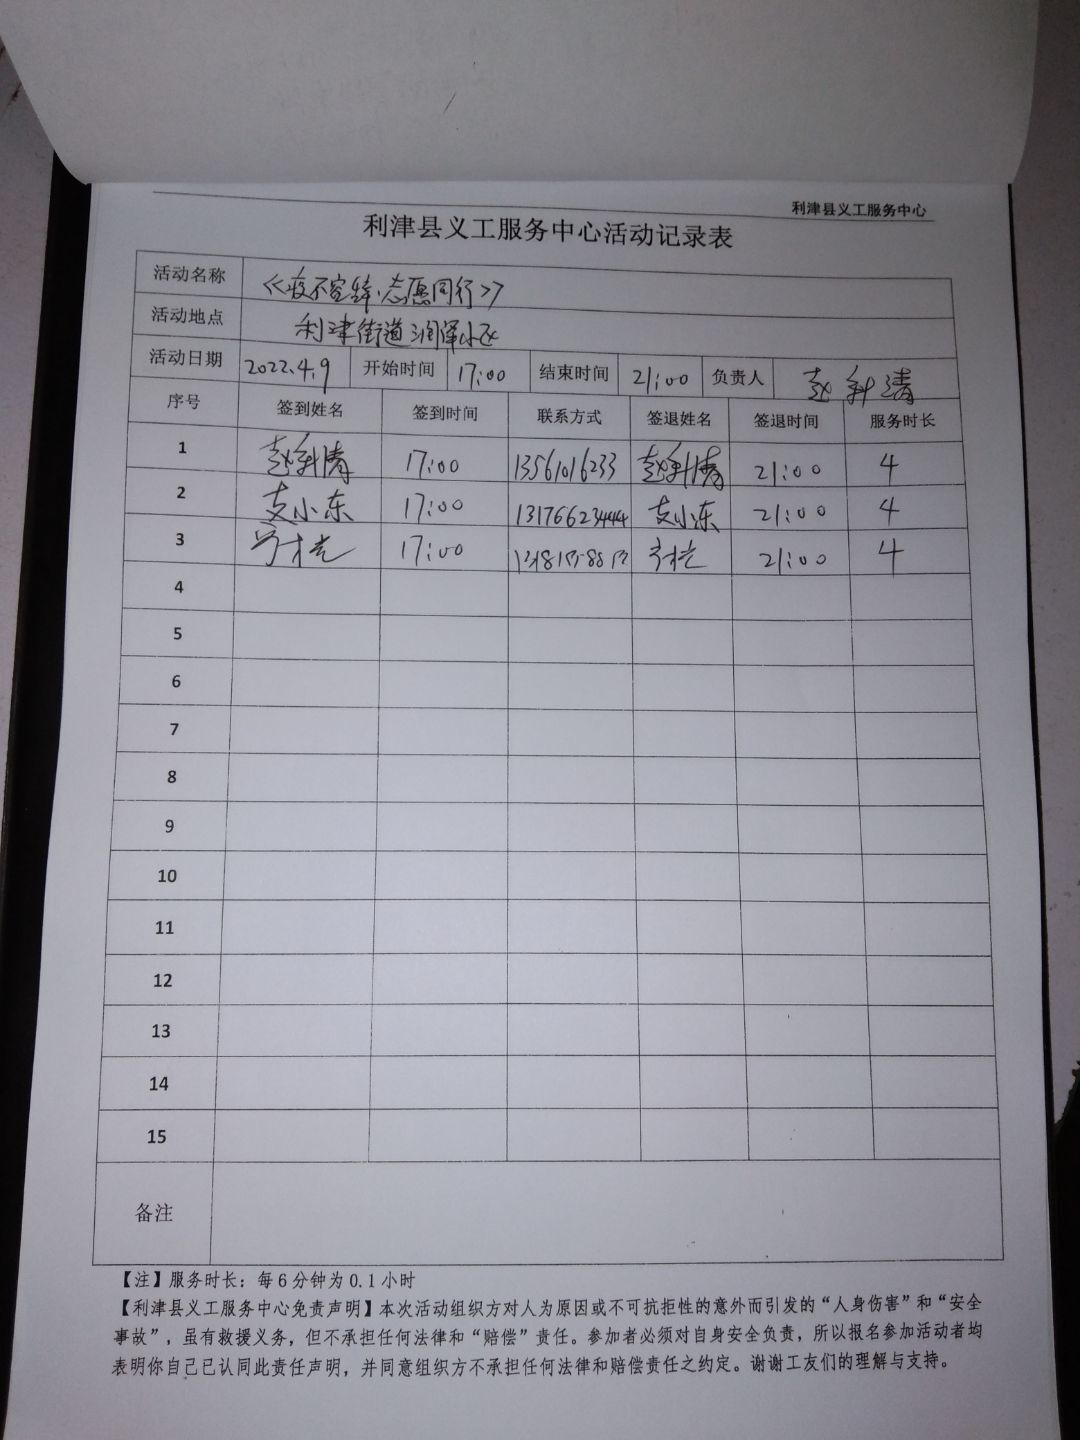 利津县义工服务中心
利津县义工服务中心活动记录表
活动名称 《疫不容缓·志愿同行》
活动地点 利津街道润泽小区
活动日期 2022.4.9 开始时间 17:00 结束时间 21:00 负责人 赵 清
序号 签到姓名 签到时间 联系方式 签退姓名 签退时间 服务时长
1 17:00 13561016233 21:00 4
2 支小东 17:00 13176623444 支小东 21:00 4
3 17:00 21:00 4
4
5
6
7
8
9
10
11
12
13
14
15
备注
【注】服务时长：每6分钟为0.1小时
【利津县义工服务中心免责声明】本次活动组织方对人为原因或不可抗拒性的意外而引发的“人身伤害”和“安全
事故”，虽有救援义务，但不承担任何法律和“赔偿”责任。参加者必须对自身安全负责，所以报名参加活动者均
表明你自己已认同此责任声明，并同意组织方不承担任何法律和赔偿责任之约定。谢谢工友们的理解与支持。